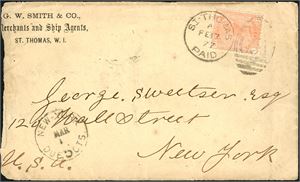 G. W. SMITH & CO.,
Merchants and Ship Agents,
ST. THOMAS, W. I.
ST-THOMAS
A
FE 17
77
PAID
George Sweetser Esq
120 Wall Street
NEW-
MAR
1
CTS.
New York
U.S.A.